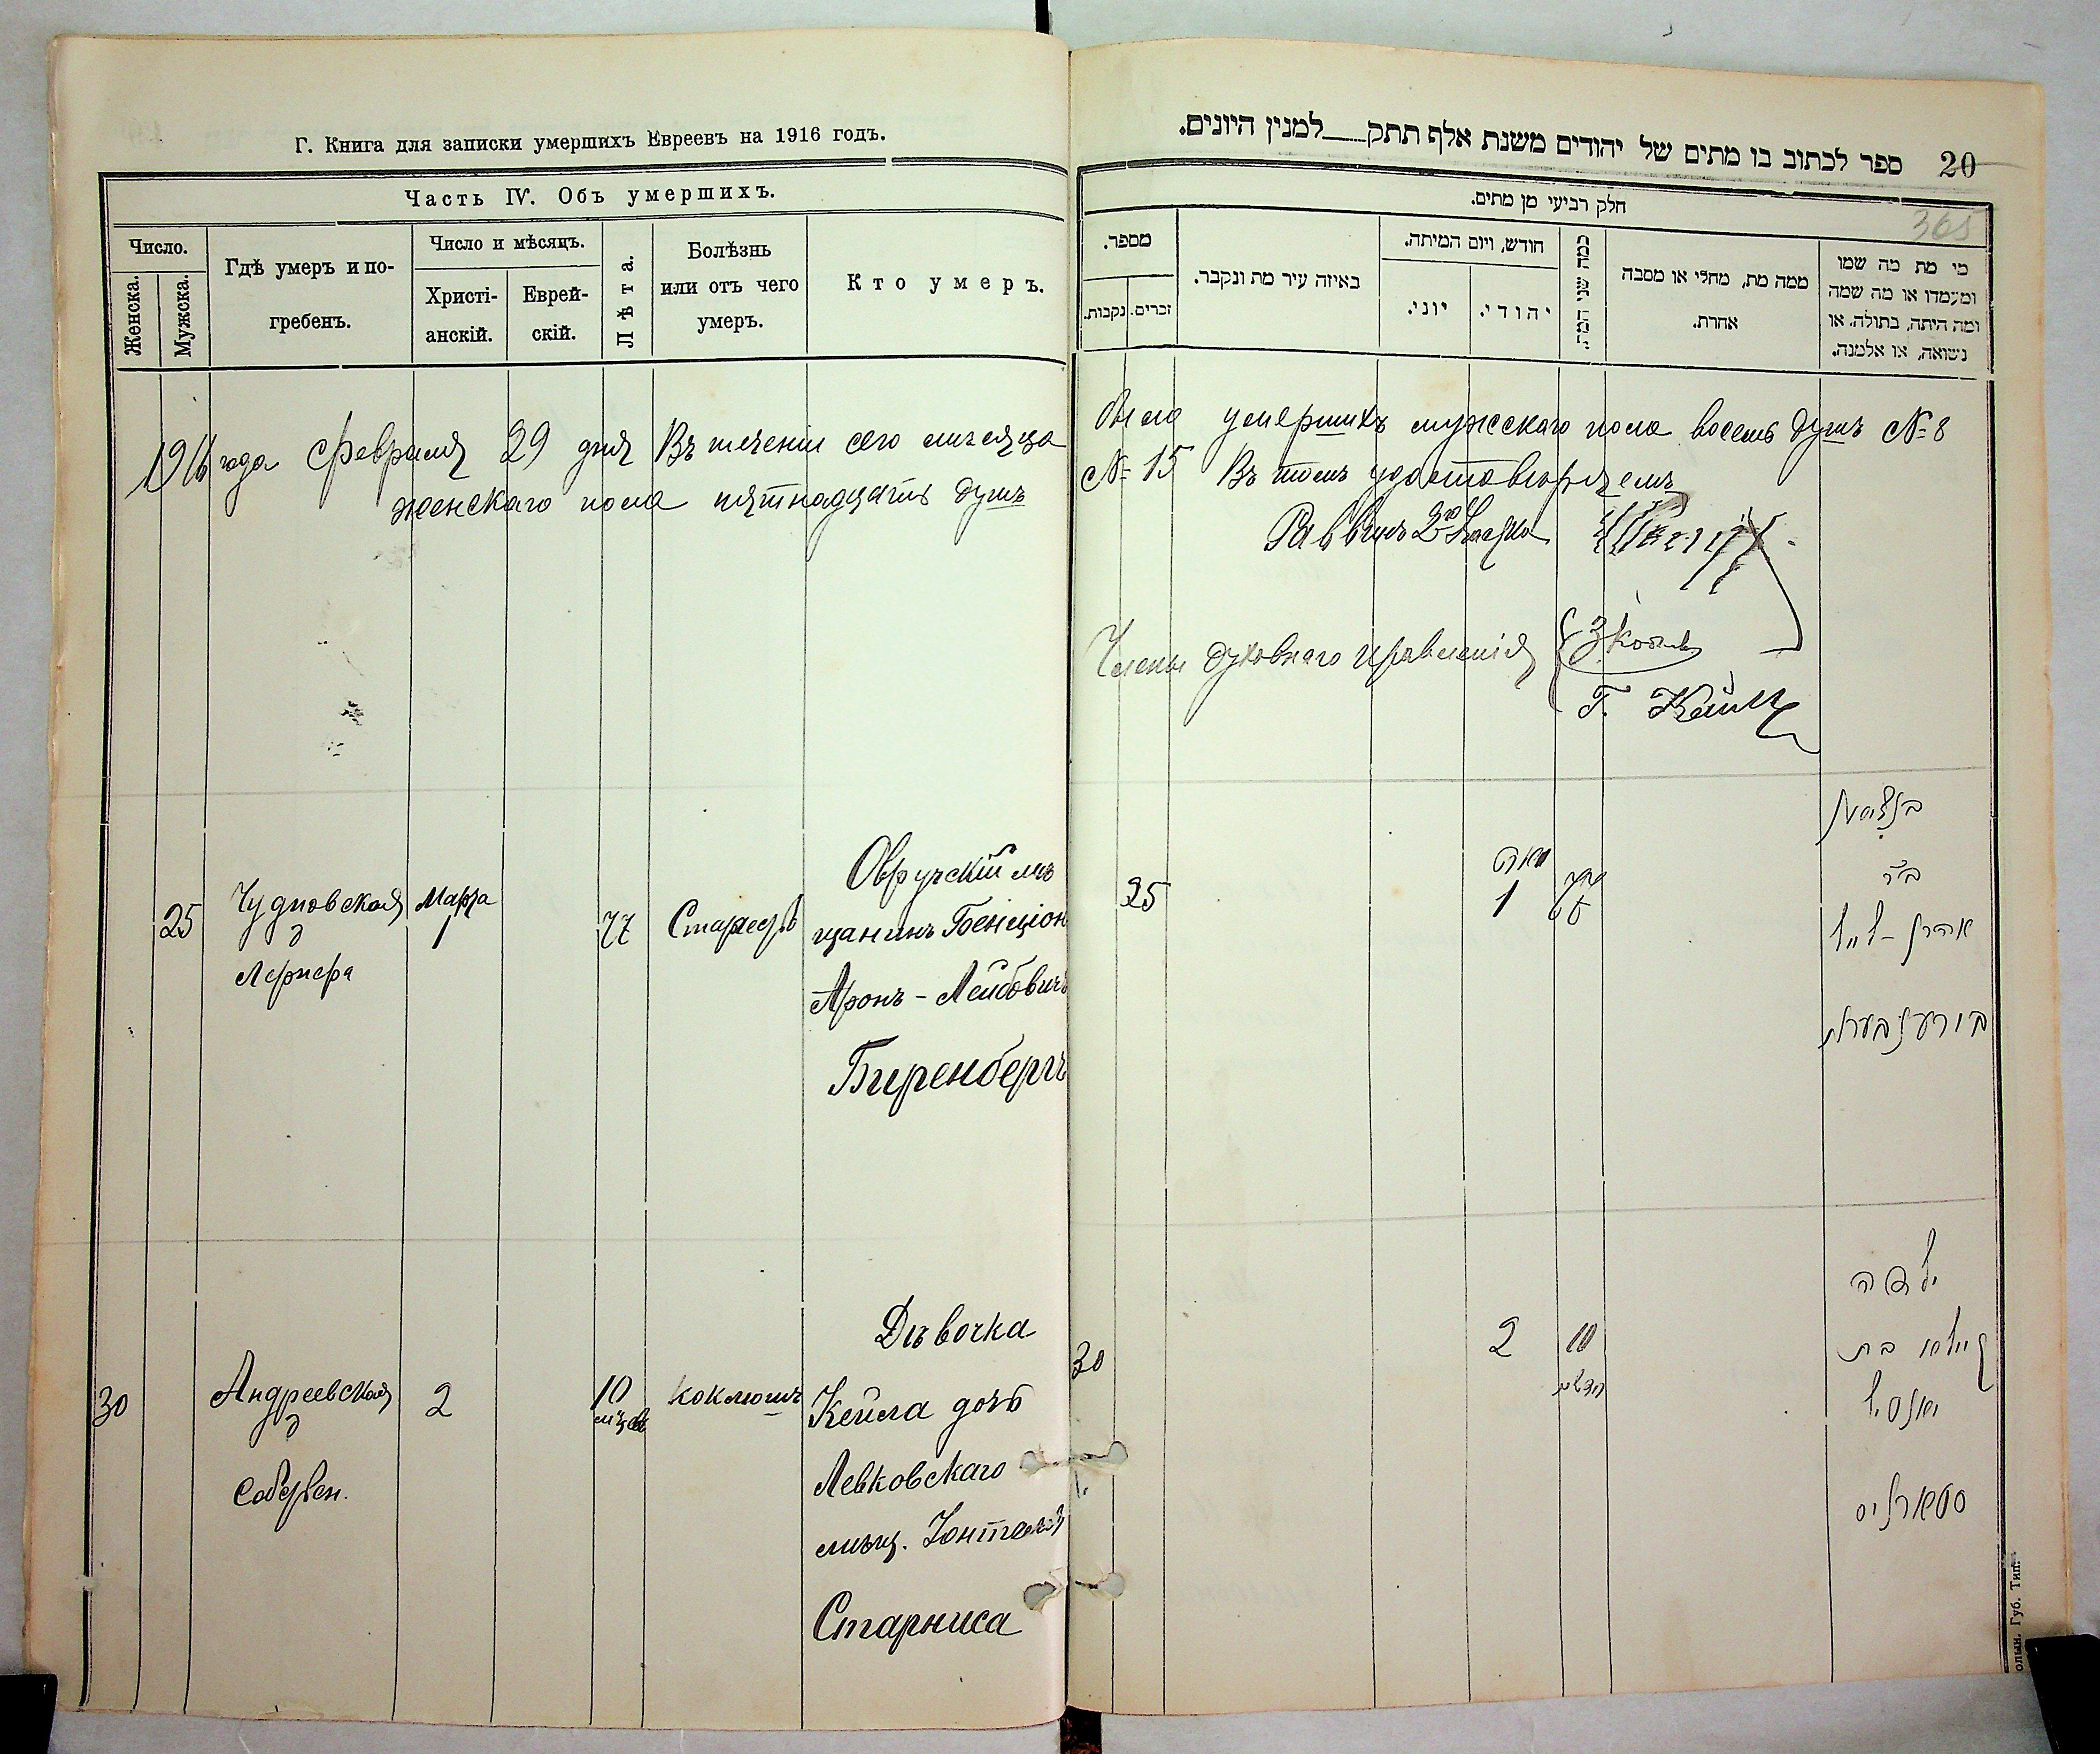 Г. Книга для записки умершихъ Евреевъ на 1916 годъ.
Часть IV. Объ умершихъ.
Число.
Женска.
Мужска.
Гдѣ умеръ и по-
гребенъ.
Число и мѣсяцъ.
Христі-
анскій.
Еврей-
скій.
Лѣта.
Болѣзнь
или отъ чего
умеръ.
Кто умеръ.
1916 года Февраля 29 дня Въ теченіи сего мѣсяца
женскаго пола пятнадцать душъ
25
Чудновская
д
Лернера
Марта
1
77
Старость
Овручскій мѣ
щанинъ Бенціон
Аронъ-Лейбовичъ
Биренбергъ
30
Андреевская
д
собствен.
2
10
коклюшъ
Дѣвочка
Кейла дочь
Левковскаго
мѣщ.
Старниса
ספר לכתוב בו מתים של יהודים משנת אלף תתק___למנין היונים.
20
חלק רביעי מן מתים.
365
מספר.
נקבות.
זכרים.
באיזה עיר מת ונקבר.
חודש, ויום המיתה.
יוני.
יהודי.
כמה שני המת.
ממה מת, מחלי או מסבה
אחרת.
מי מת מה שמו
ומעמדו או מה שמה
ומה היתה, בתולה, או
נשואה, או אלמנה.
было умершихъ мужскаго пола восемь душъ №8
№ 15 Въ томъ удостовѣряемъ
Раввинъ 2го
Члены духовнаго правленія
Г.
25
מארט
1
בנציון
ב"ר
אהרן-לייב
בירענבערג
30
2
10
חדשים
ילדה
קיילא בת
סטארניס
олын. Губ. Тип.